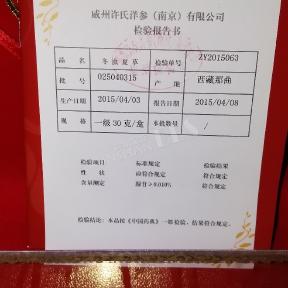 威州许氏洋参（南京）有限公司
检验报告书
品 名 冬虫夏草 检验单号 ZY2015063
批 号 025040315 产 地 西藏那曲
生产日期 2015/04/03 报告日期 2015/04/08
规 格 一级30克/盒 本批数量 /
检验项目 标准规定 检验结果
性 状 应符合规定 符合规定
含量测定 腺苷≥0.010% 符合规定
检验结论：本品按《中国药典》一部检验，结果符合规定。